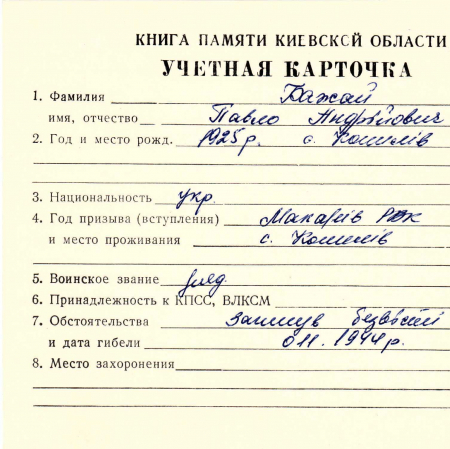 КНИГА ПАМЯТИ КИЕВСКОЙ ОБЛАСТИ
УЧЕТНАЯ КАРТОЧКА
1. Фамилия Бажай
имя, отчество Павло Андрійович
2. Год и место рожд. 1925 р. с. Кошилів
3. Национальность укр.
4. Год призыва (вступления) Макарів РВК
и место проживания с. Кошилів
5. Воинское звание ряд.
6. Принадлежность к КПСС, ВЛКСМ
7. Обстоятельства загинув безвісті
и дата гибели 011. 1944 р.
8. Место захоронения